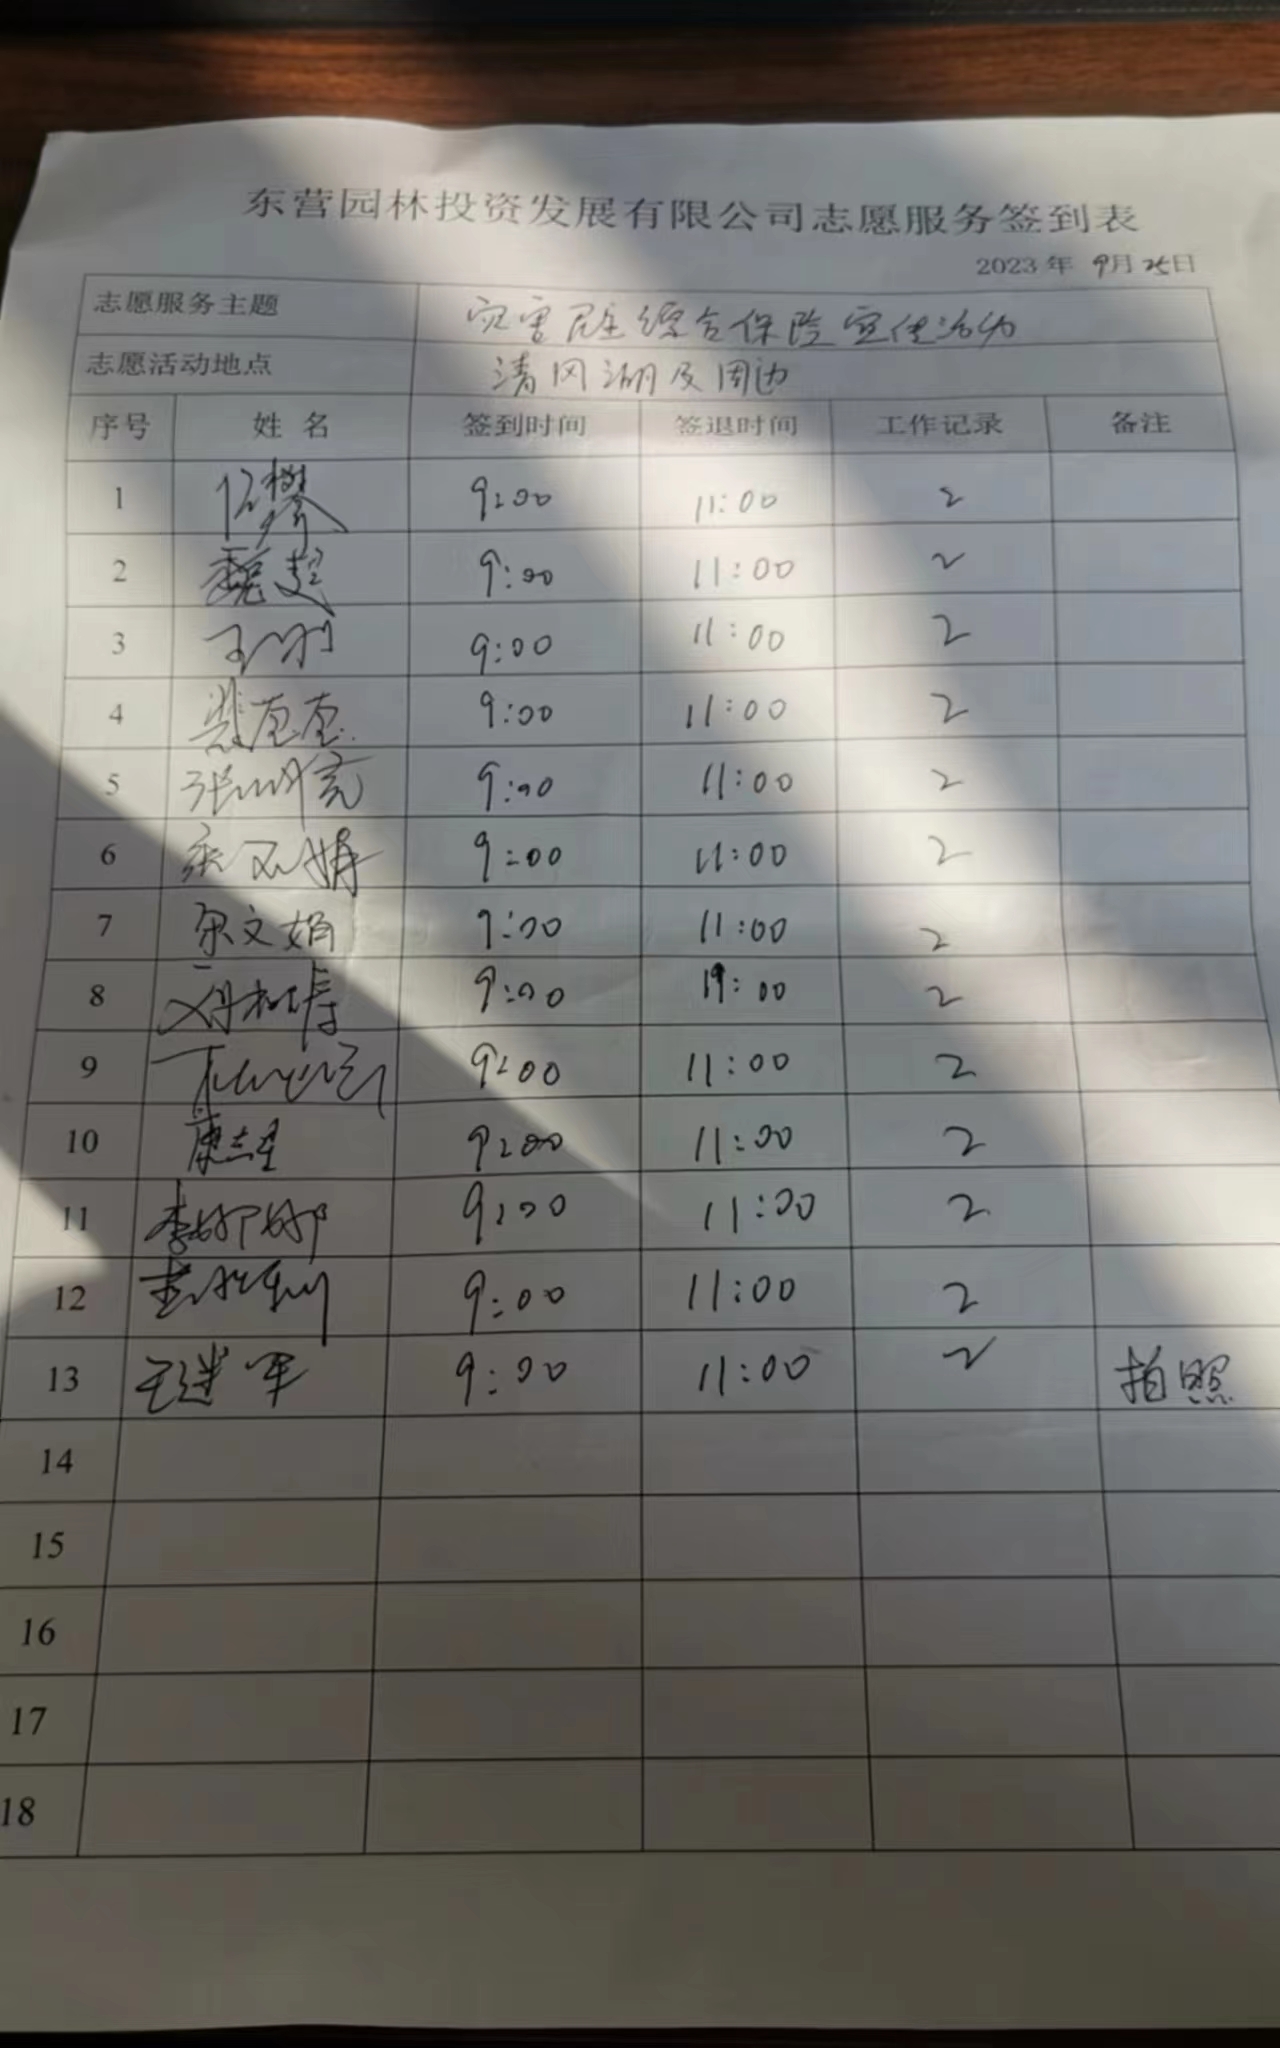 东营园林投资发展有限公司志愿服务签到表
2023 年 9月 25日
志愿服务主题 灾害民生综合保险宣传活动
志愿活动地点 清风湖及周边
序号 姓 名 签到时间 签退时间 工作记录 备注
1 9:00 11:00 2
2 魏超 9:00 11:00 2
3 9:00 11:00 2
4 9:00 11:00 2
5 张明亮 9:00 11:00 2
6 9:00 11:00 2
7 宋文娟 9:00 11:00 2
8 9:00 11:00 2
9 9:00 11:00 2
10 康志星 9:00 11:00 2
11 李娜娜 9:00 11:00 2
12 9:00 11:00 2
13 王进军 9:00 11:00 2 拍照
14
15
16
17
18